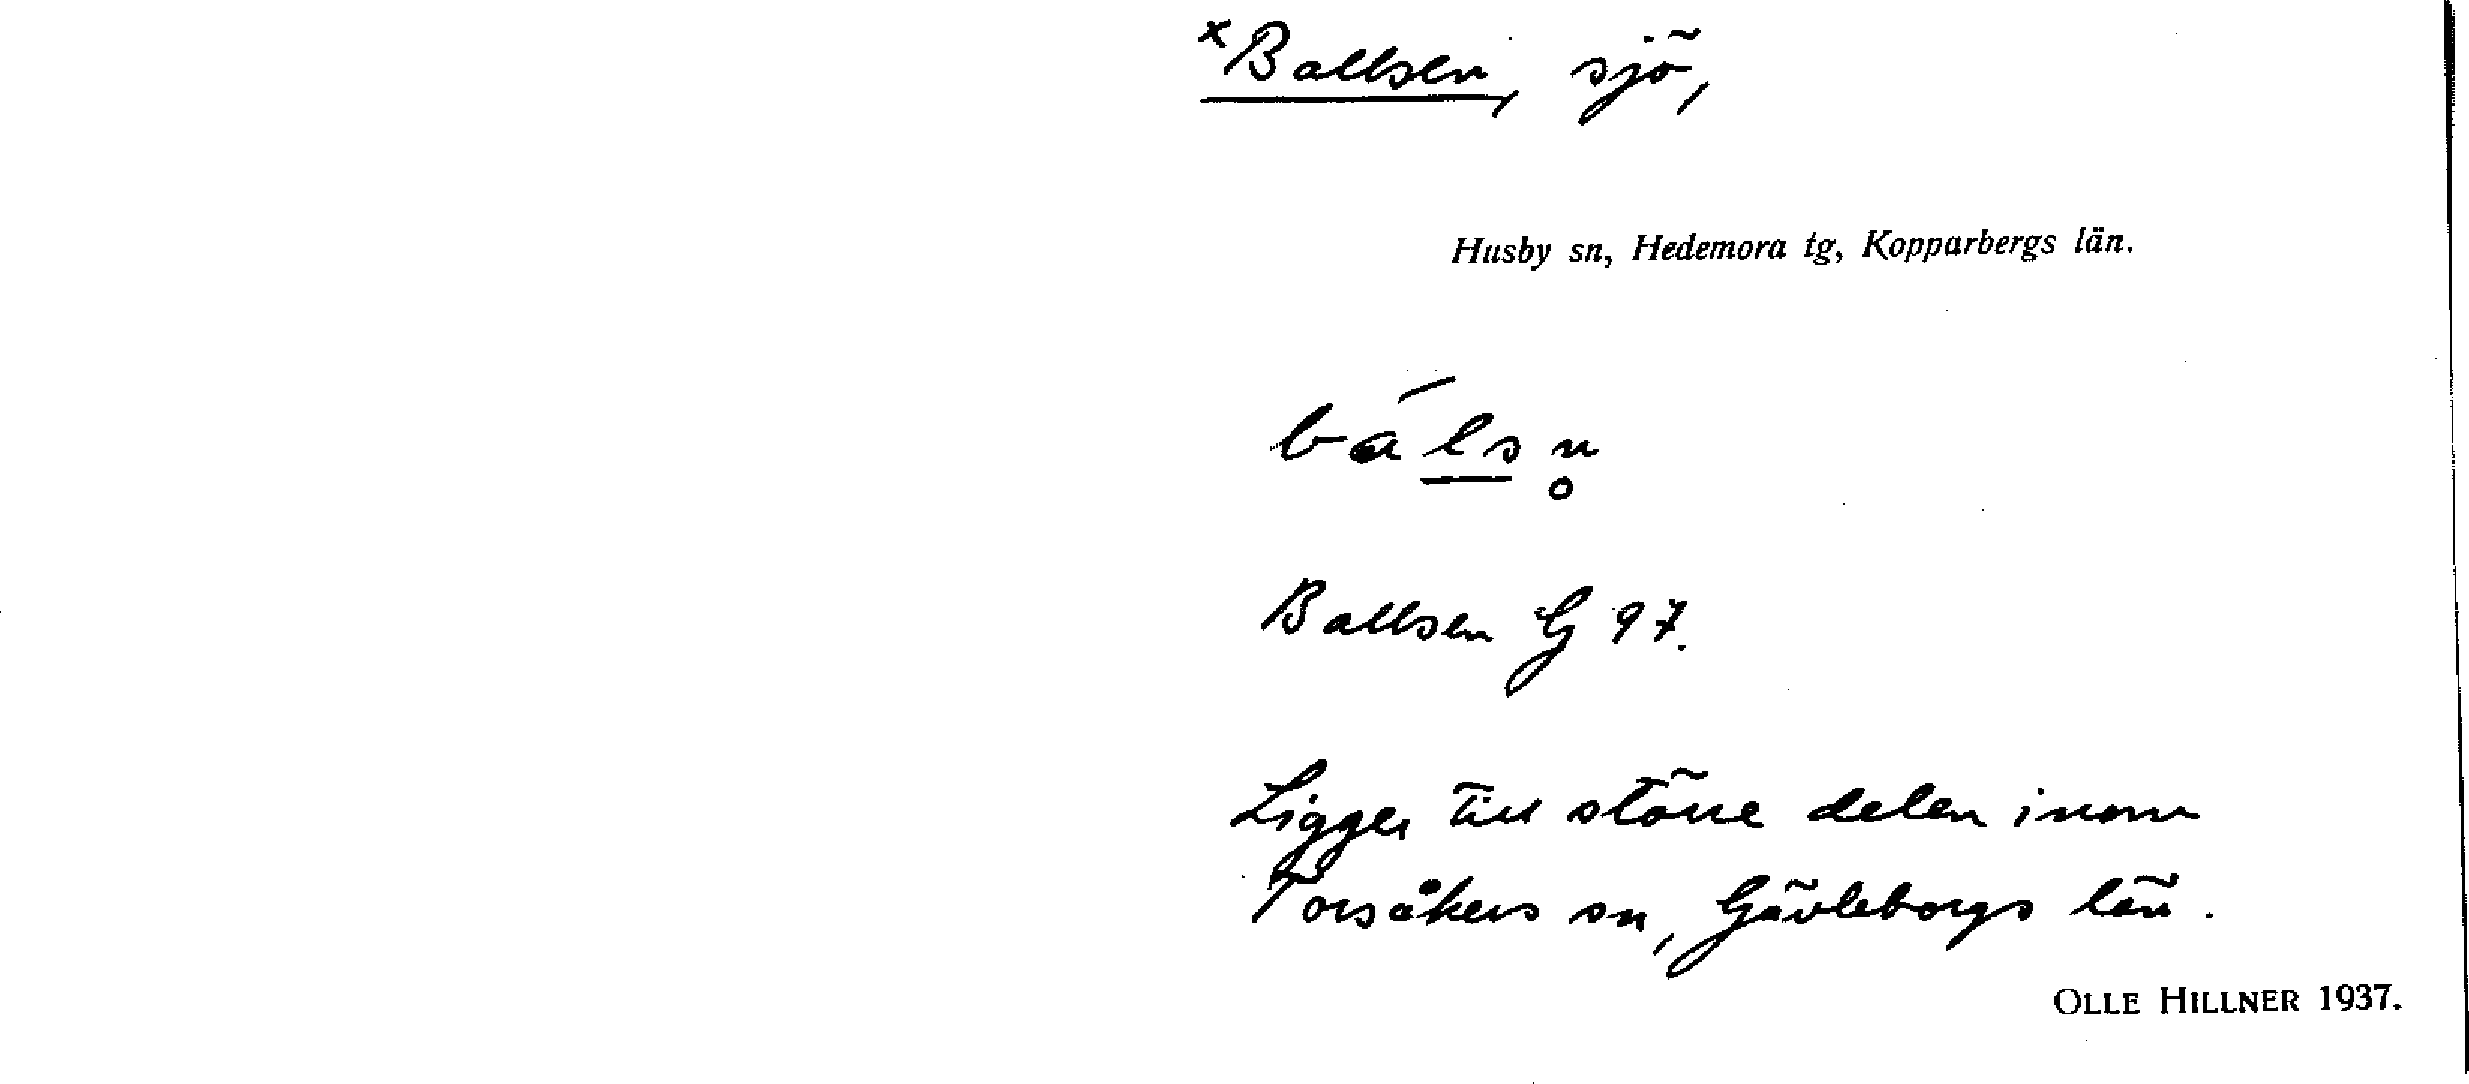 ×Ballsen, sjö,
Husby sn, Hedemora tg, Kopparbergs län.
bálsn̥
Ballsen G 97.
Ligger till större delen inom
Torsåkers sn, Gävleborgs län.
OLLE HILLNER 1937.